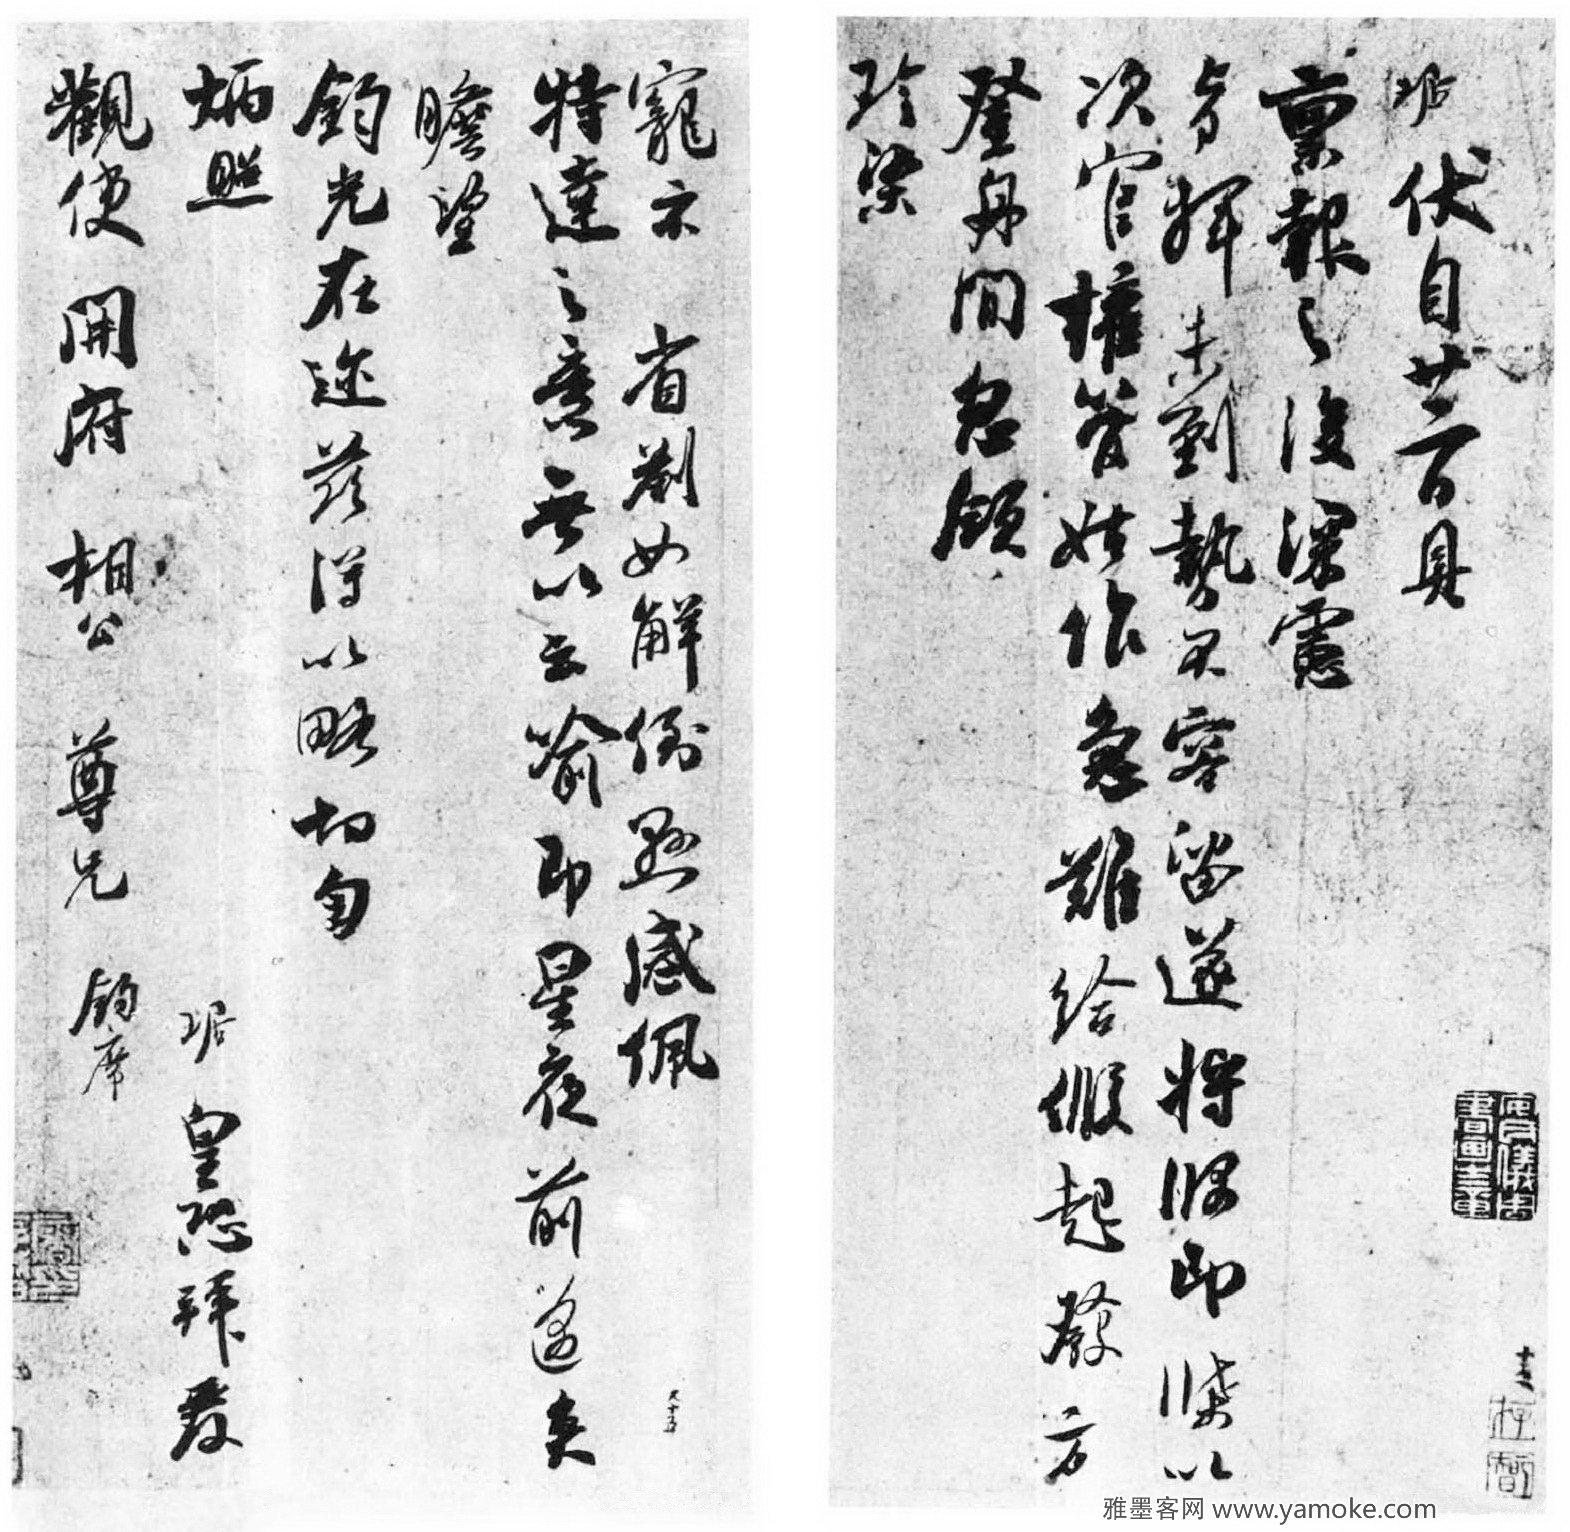 琚伏自廿二百具
稟報之後深慮
旁撑未到勢不容留遂將牌印牒以
次官權管始作急難給假起發方
登舟間忽領
珍染
寵示 省劄如解倒懸感佩
特達之意無以云喻即星夜前邁矣
瞻望
鈞光在邇茲得以略切勿
炳照
琚皇恐拜發
觀使 開府 相公 尊兄 鈞席
雅墨客网 www.yamoke.com